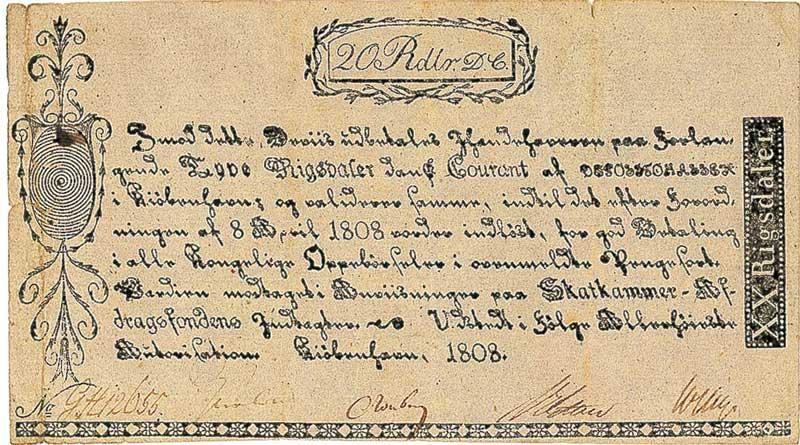 20 Rdlr. D.C.
Imod dette Beviis udbetales Ihændehaveren paa Forlan-
gende Tyve Rigsdaler dansk Courant af
i Kiöbenhavn; og validerer samme, indtil det efter Forord-
ningen af 8 April 1808 vorder indlöst, for god Betaling
i alle Kongelige Oppebörseler i ovenmeldte Pengesort.
Værdien modtaget i Anviisninger paa Skatkammer-Af-
dragsfondens Indtægter. Udstedt i Fölge Allerhöieste
Autorisation. Kiöbenhavn, 1808.
XX Rigsdaler
No 12655